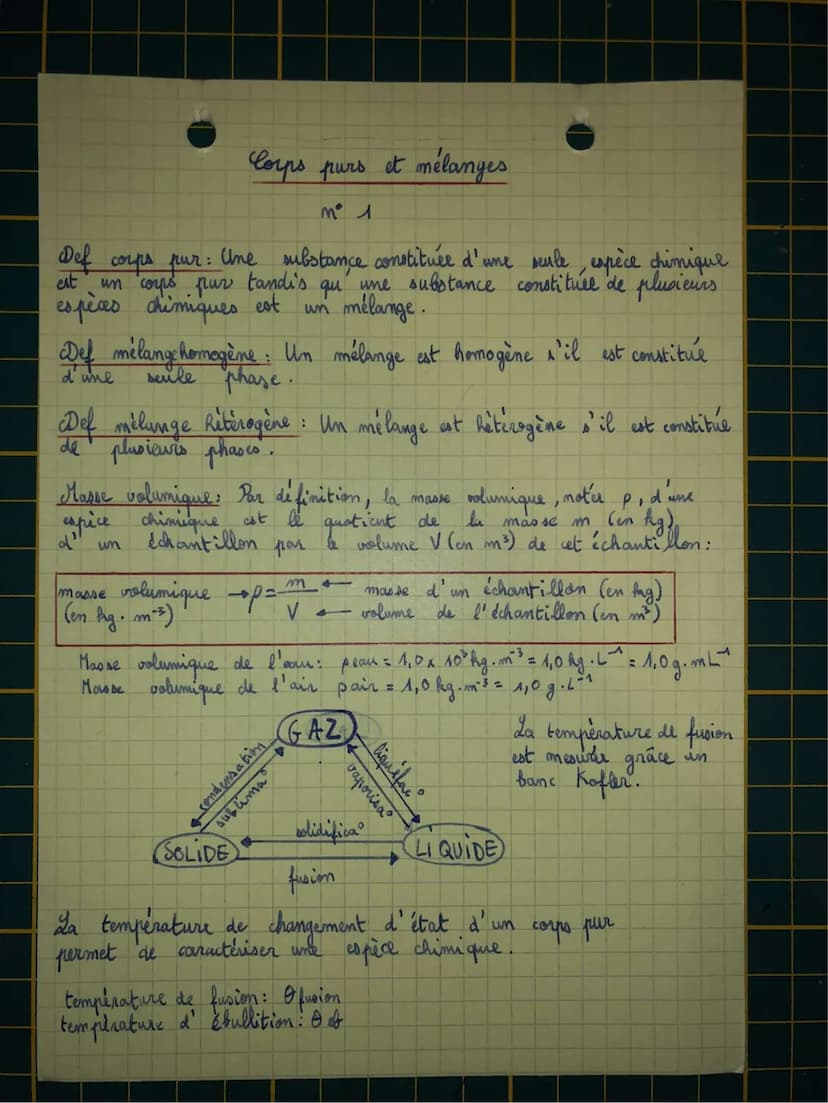 Corps purs et mélanges
n° 1
Def corps pur : Une substance constituée d'une seule espèce chimique
est un corps pur tandis qu'une substance constituée de plusieurs
espèces chimiques est un mélange.
Def mélange homogène : Un mélange est homogène s'il est constitué
d'une seule phase.
Def mélange hétérogène : Un mélange est hétérogène s'il est constitué
de plusieurs phases.
Masse volumique : Par définition, la masse volumique, notée ρ, d'une
espèce chimique est le quotient de la masse m (en kg)
d'un échantillon par le volume V (en m³) de cet échantillon :
masse volumique → ρ = m/V ← masse d'un échantillon (en kg)
(en kg. m⁻³) ← volume de l'échantillon (en m³)
Masse volumique de l'eau : ρeau = 1,0 x 10³ kg. m⁻³ = 1,0 kg. L⁻¹ = 1,0 g. mL⁻¹
Masse volumique de l'air ρair = 1,0 kg. m⁻³ = 1,0 g. L⁻¹
GAZ
condensation
sublima°
liquéfac°
vaporisa°
La température de fusion
est mesurée grâce un
banc Kofler.
solidifica°
SOLIDE
LIQUIDE
fusion
La température de changement d'état d'un corps pur
permet de caractériser une espèce chimique.
température de fusion : θ fusion
température d'ébullition : θ eb